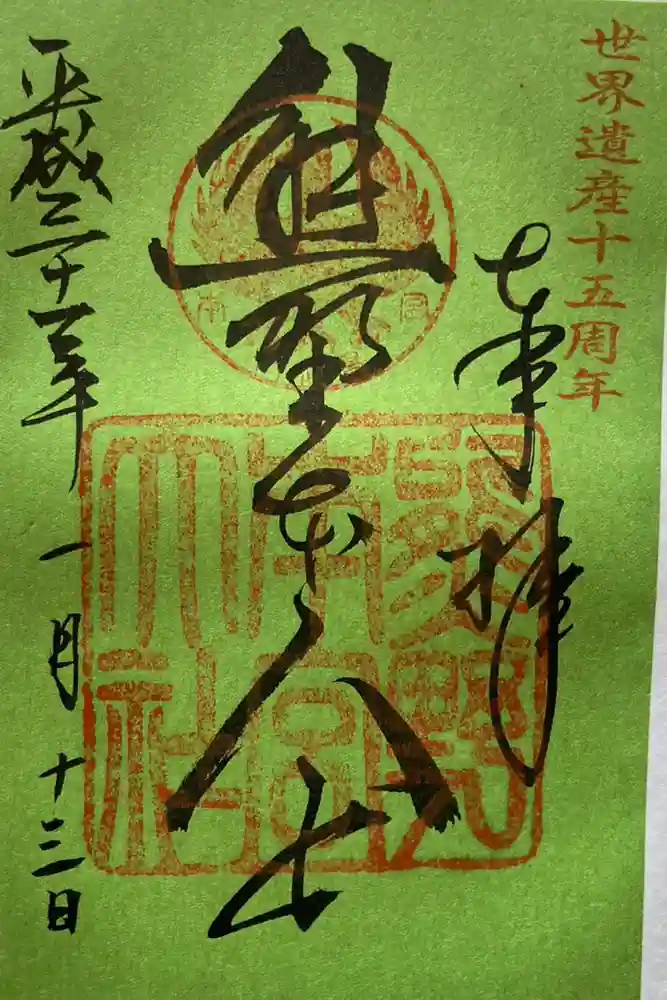 世界遺産十五周年
奉拝
熊野本
熊野
本宮
大社
平成三十一年一月十三日